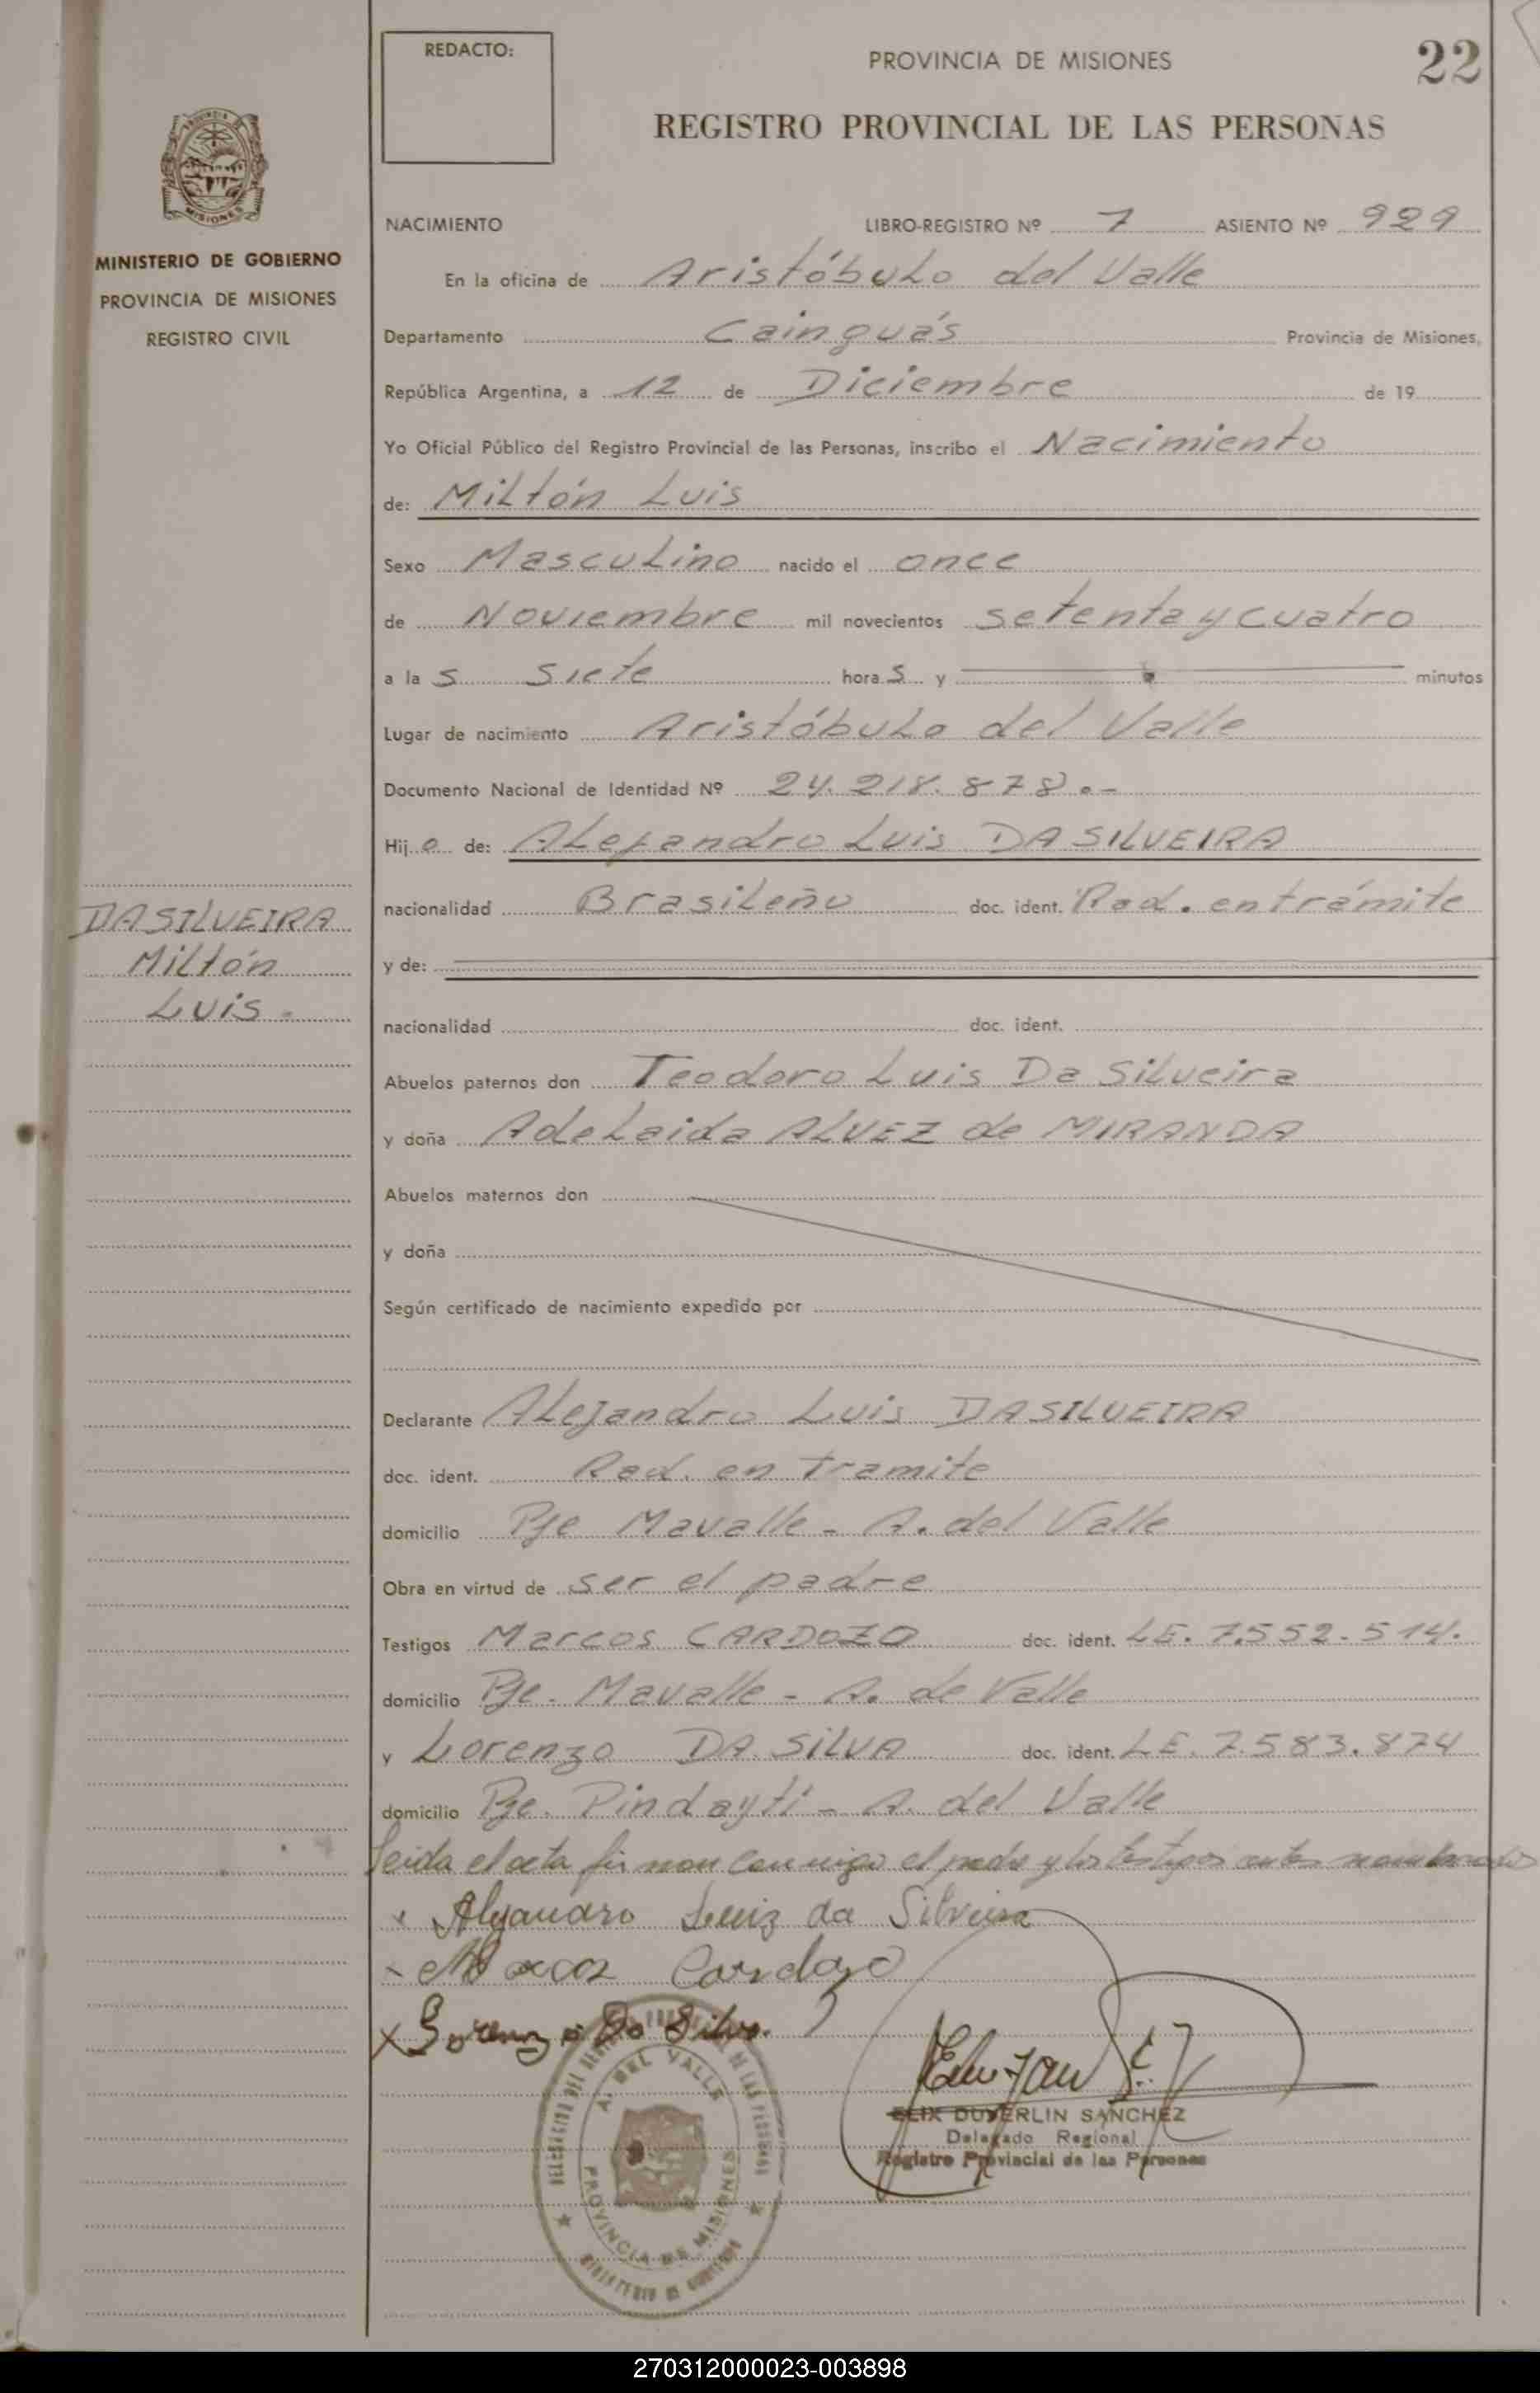 REDACTO:
PROVINCIA DE MISIONES
22
REGISTRO PROVINCIAL DE LAS PERSONAS
MISIONES
MINISTERIO DE GOBIERNO
PROVINCIA DE MISIONES
REGISTRO CIVIL
NACIMIENTO LIBRO-REGISTRO Nº 7 ASIENTO Nº 929
En la oficina de Aristóbulo del Valle
Departamento Cainguás Provincia de Misiones,
República Argentina, a 12 de Diciembre de 19
Yo Oficial Público del Registro Provincial de las Personas, inscribo el Nacimiento
de: Miltón Luis
Sexo Masculino nacido el once
de Noviembre mil novecientos setenta y cuatro
a la s siete hora s y minutos
Lugar de nacimiento Aristóbulo del Valle
Documento Nacional de Identidad Nº 24.218.878.-
Hij o de: Alejandro Luis DA SILVEIRA
nacionalidad Brasileño doc. ident. Rad. en trámite
DASILVEIRA
Miltón
Luis.
y de:
nacionalidad doc. ident.
Abuelos paternos don Teodoro Luis Da Silveira
y doña Adelaida ALVEZ de MIRANDA
Abuelos maternos don
y doña
Según certificado de nacimiento expedido por
Declarante Alejandro Luis DASILVEIRA
doc. ident. Rad. en tramite
domicilio Pje Mavalle - A. del Valle
Obra en virtud de ser el padre
Testigos Marcos CARDOZO doc. ident. LE. 7.552.514.
domicilio Pje. Mavalle - A. de Valle
y Lorenzo DA SILVA doc. ident. LE. 7.583.874
domicilio Pje. Pindaytí - A. del Valle
Leida el acta firman conmigo el padre y los testigos antes nombrados
x Alejandro Luiz da Silveira
x Marcos Cardozo
x Lorenzo Da Silva.
A. DEL VALLE
PROVINCIA DE MISIONES
MINISTERIO DE GOBIERNO
ELIX DUVERLIN SANCHEZ
Delegado Regional
Registro Provincial de las Personas
270312000023-003898